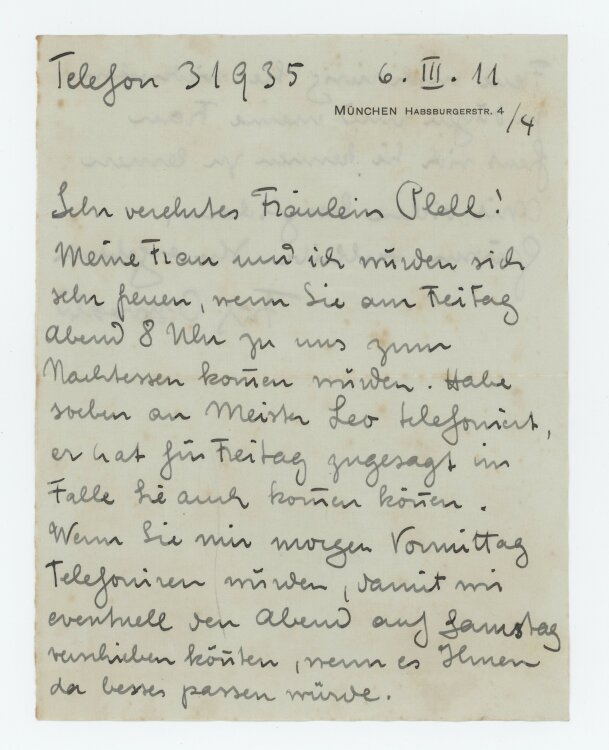 Telefon 31935 6. III. 11
MÜNCHEN HABSBURGERSTR. 4
/4
Sehr verehrtes Fräulein Plell!
Meine Frau und ich würden sich
sehr freuen, wenn Sie am Freitag
Abend 8 Uhr zu uns zum
Nachtessen kom̄en würden. Habe
soeben an Meister Leo telefoniert,
er hat für Freitag zugesagt im
Falle Sie auch kom̄en kön̄en.
Wenn Sie mir morgen Vormittag
Telefoniren würden, damit wir
eventuell den Abend auf Samstag
verschieben kön̄ten, wenn es Ihnen
da besser passen würde.